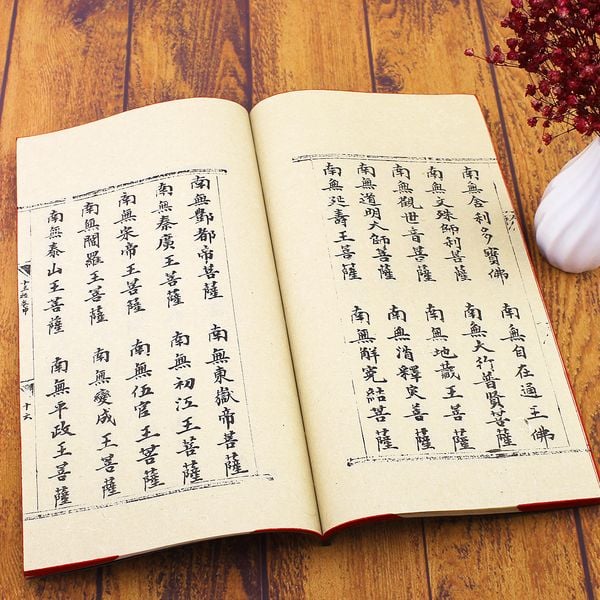 南無舍利多寶佛
南無自在通王佛
南無文殊師利菩薩
南無大行普賢菩薩
南無觀世音菩薩
南無地藏王菩薩
南無道明大師菩薩
南無消釋灾菩薩
南無延壽王菩薩
南無解冤結菩薩
南無酆都帝菩薩
南無東嶽帝菩薩
南無秦廣王菩薩
南無初江王菩薩
南無宋帝王菩薩
南無伍官王菩薩
南無閻羅王菩薩
南無變成王菩薩
南無泰山王菩薩
南無平政王菩薩
十六